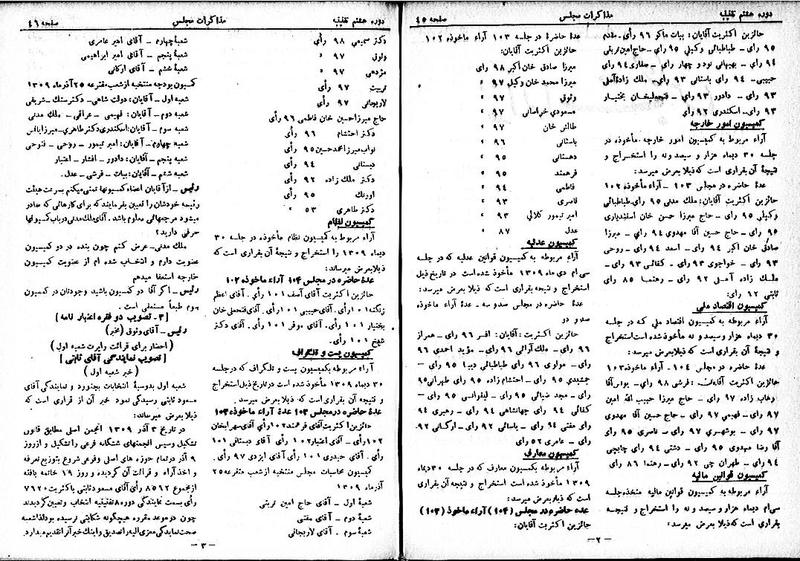 دوره هفتم تقنینیه مذاکرات مجلس صفحه ۴۵
حائزین اکثریت آقایان: بیات ماکو ۹۶ رأی - مقدم
۹۵ رأی - طباطبائی وکیلی ۹۵ رأی - حاج امین عریفی
۹۴ رأی - بهبهانی نود و چهار رأی - صفاری ۹۴ رأی
حبیبی ۹۴ رأی باستانی ۹۳ رأی - ملک زاده آملی
۹۳ رأی - دادور ۹۳ رأی - فتحعلیخان بختیار
۹۳ رأی - اسکندری ۹۲ رأی
کمیسیون امور خارجه
آراء مربوط به کمیسیون امور خارجه مأخوذه در
جلسه ۳۰ دیماه هزار و سیصد و نه را استخراج و
نتیجهٔ آن بقراری است که ذیلا بعرض میرسد:
عدهٔ حاضره در مجلس ۱۰۳ - آراء مأخوذه ۱۰۲
حائزین اکثریت آقایان: ملک مدنی ۹۵ رأی - طباطبائی
وکیلی ۹۵ رأی - حاج میرزا حسن خان اسفندیاری
۹۵ رأی - حاج حسین آقا مهدوی ۹۴ رأی - میرزا
صادق خان اکبر ۹۴ رأی - اسعد ۹۴ رأی - روحی
۹۳ رأی - خواجوی ۹۳ رأی - کفائی ۹۳ رأی -
ملک زاده آملی ۹۲ رأی - رهنما ۸۵ رأی
ثابتی ۱۲ رأی:
کمیسیون اقتصاد ملی
آراء مربوطه به کمیسیون اقتصاد ملی که در جلسه
۳۰ دیماه هزار و سیصد و نه مأخوذه شده است استخراج
و نتیجهٔ آن بقراری است که ذیلا بعرض میرسد:
عدهٔ حاضره در مجلس ۱۰۴ - آراء مأخوذه ۱۰۳
وهاب زاده ۹۷ رأی - حاج میرزا حبیب الله امین
۹۷ رأی - فهیمی ۹۷ رأی - حاج حسین آقا مهدوی
۹۷ رأی - بوشهری ۹۷ رأی - ناصری ۹۵ رأی
آقا رضا مهدوی ۹۵ رأی - دشتی ۹۴ رأی چایچی
۹۴ رأی - طهران چی ۹۲ رأی - رهنما ۸۶ رأی
کمیسیون قوانین مالیه
آراء مربوط به کمیسیون قوانین مالیه متخذه جلسه
سی‌ام دیماه هزار و سیصد و نه را استخراج و نتیجه
بقراری است که ذیلا بعرض میرسد:
عدهٔ حاضرهٔ در جلسه ۱۰۳ آراء مأخوذه ۱۰۲
حائزین اکثریت آقایان:
میرزا صادق خان اکبر ۹۸ رأی
میرزا محمد خان وکیل ۹۷ «
وثوق ۹۷ «
مسعودی خراسانی ۹۷ «
طالش خان ۹۷ «
باستانی ۹۶ «
دهستانی ۹۵ «
فرهمند ۹۵ «
فاطمی ۹۴ «
ناصری ۹۴ «
امیر تیمور کلالی ۹۳ «
عدل ۸۷ «
کمیسیون عدلیه
آراء مربوطه به کمیسیون قوانین عدلیه که در جلسه
سی ام دی ماه ۱۳۰۹ مأخوذ شده است در تاریخ فوق
استخراج و نتیجه بقراری است که ذیلا بعرض میرسد:
عدهٔ حاضره در مجلس صد و سه - آراء مأخوذه
صد و دو
حائزین اکثریت آقایان: افسر ۹۶ رأی - همراز
۹۶ رأی - ملک آرائی ۹۶ رأی - مؤید احمدی ۹۶
رأی - مولوی ۹۶ رأی طباطبائی دیبا ۹۵ رأی -
جمشیدی ۹۵ رأی - احتشام زاده ۹۵ رأی طهرانی ۹۵
رأی - مجد ضیائی ۹۵ رأی - لیقوانی ۹۵ رأی -
کفائی ۹۴ رأی جهانشاهی ۹۴ رأی - رهبری ۹۴
رأی مفتی ۹۴ رأی - یاسائی ۹۲ رأی - اورکانی ۹۲
رأی - عامری ۵۲ رأی
کمیسیون معارف
آراء مربوط به کمیسیون معارف که در جلسه ۳۰ دیماه
۱۳۰۹ مأخوذ شده است استخراج و نتیجه آن بقراری
است که ذیلا بعرض میرسد:
عده حاضره در مجلس (۱۰۴) آراء مأخوذ (۱۰۳)
حائزین اکثریت آقایان:
- ۲ -
دوره هفتم تقنینیه مذاکرات مجلس صفحه ۴۶
دکتر سمیعی ۹۸ رأی
وثوق ۹۷ «
مژدهی ۹۷ «
تربیت ۹۷ رأی
لاریجانی ۹۷ رأی
حاج میرزا حسین خان فاطمی ۹۶ رأی
دکتر احتشام ۹۶ رأی
نواب میرزا محمد حسین ۹۵ رأی
دبستانی ۹۴ رأی
دکتر ملک زاده ۹۲ رأی
اورنگ ۹۵ رأی
دکتر طاهری ۵۳ «
کمیسیون نظام
آراء مربوط به کمیسیون نظام مأخوذه در جلسه ۳۰
دیماه ۱۳۰۹ را استخراج و نتیجهٔ آن بقراری است که
ذیلا بعرض میرسد:
عدهٔ حاضره در مجلس ۱۰۴ آراء مأخوذه ۱۰۲
حائزین اکثریت آقای آصف ۱۰۱ رأی - آقای اعظم
زنگنه ۱۰۱ رأی - آقای حبیبی ۱۰۱ رأی - آقای فتحعلی خان
بختیار ۱۰۱ رأی - آقای موقر ۱۰۱ رأی - آقای دکتر
شیخ ۱۰۱ رأی.
کمیسیون پست و تلگراف
آراء مربوطه بکمیسیون پست و تلگراف که در جلسه
۳۰ دیماه ۱۳۰۹ مأخوذ شده است در تاریخ ذیل استخراج
و نتیجه آن بقراری است که ذیلا بعرض میرسد:
عدهٔ حاضره در مجلس ۱۰۳ عدهٔ آراء مأخوذه ۱۰۳
حائزین اکثریت آقای فرهمند ۱۰۲ رأی آقای سهراب خان
۱۰۲ رأی - آقای اعتبار ۱۰۲ رأی آقای دبستانی ۱۰۱
رأی آقای حیدری ۱۰۱ رأی آقای ایزدی ۹۷ رأی.
کمیسیون محاسبات مجلس منتخبه از شعب متفرعه ۲۵
آذرماه ۱۳۰۹
شعبهٔ اول - آقای حاج امین تربتی
شعبهٔ دوم - آقای مفتی
شعبهٔ سوم - آقای لاریجانی
شعبهٔ چهارم - آقای امیر عامری
شعبهٔ پنجم - آقای امیر ابراهیمی
شعبهٔ ششم - آقای ارکانی
کمیسیون بودجه منتخبه از شعب متفرعه ۲۵ آذرماه ۱۳۰۹
شعبه اول - آقایان: دولت شاهی - دکتر سنگ - شریفی
شعبهٔ دوم - آقایان: فهیمی - عراقی - ملک مدنی
شعبه چهارم - آقایان: امیر تیمور - روحی - فتوحی
شعبه پنجم - آقایان: دادور - افشار - اعتبار
شعبه ششم - آقایان: بیات - قرشی - عدل.
رئیس - از آقایان اعضاء کمیسیونها تمنی میکنم سرعت هیئت
رئیسه خودشان را تعیین بفرمایند که برای کارهائی که عائد
میشود مرجعهائی معلوم باشد. آقای ملک مدنی در باب کمیسیونها
حرفی دارید؟
ملک مدنی - عرض کنم چون بنده در دو کمیسیون
عضویت دارم و انتخاب شده ام از عضویت کمیسیون
خارجه استعفا میدهم
رئیس - اگر آقا در کمیسیون باشید وجودتان در کمیسیون
دوم طبعاً مستعفی است.
[۳ - تصویب دو فقره اعتبار نامه]
رئیس - آقای وثوق (مخبر)
(احضار برای قرائت راپرت شعبه اول)
[تصویب نمایندگی آقای ثابتی]
(خبر شعبه اول)
شعبه اول بدوسیهٔ انتخابات بجنورد و نمایندگی آقای
مسعود ثابتی رسیدگی نمود خبر آن از قراری است که
ذیلا بعرض میرساند:
در تاریخ ۳ آذر ۱۳۰۹ انجمن اصلی مطابق قانون
تشکیل و سپس انجمنهای ششگانه فرعی را تشکیل و از روز
۹ آذر در تمام حوزه های اصلی و فرعی شروع بتوزیع تعرفه
و اخذ آراء و قرائت آن گردیده و روز ۱۹ خاتمه یافته
از مجموع ۸۵۹۲ رأی آقای مسعود ثابتی با کثریت ۷۱۲۰
رأی بسمت نمایندگی دوره ۸ تقنینیه انتخاب و تعیین گردیدند
چون در موعد مقرره هیچگونه شکایتی نرسیده بود لذا شعبه
صحت نمایندگی معزی الیه را تصدیق و اینک خبر آنرا تقدیم میدارد.
- ۳ -